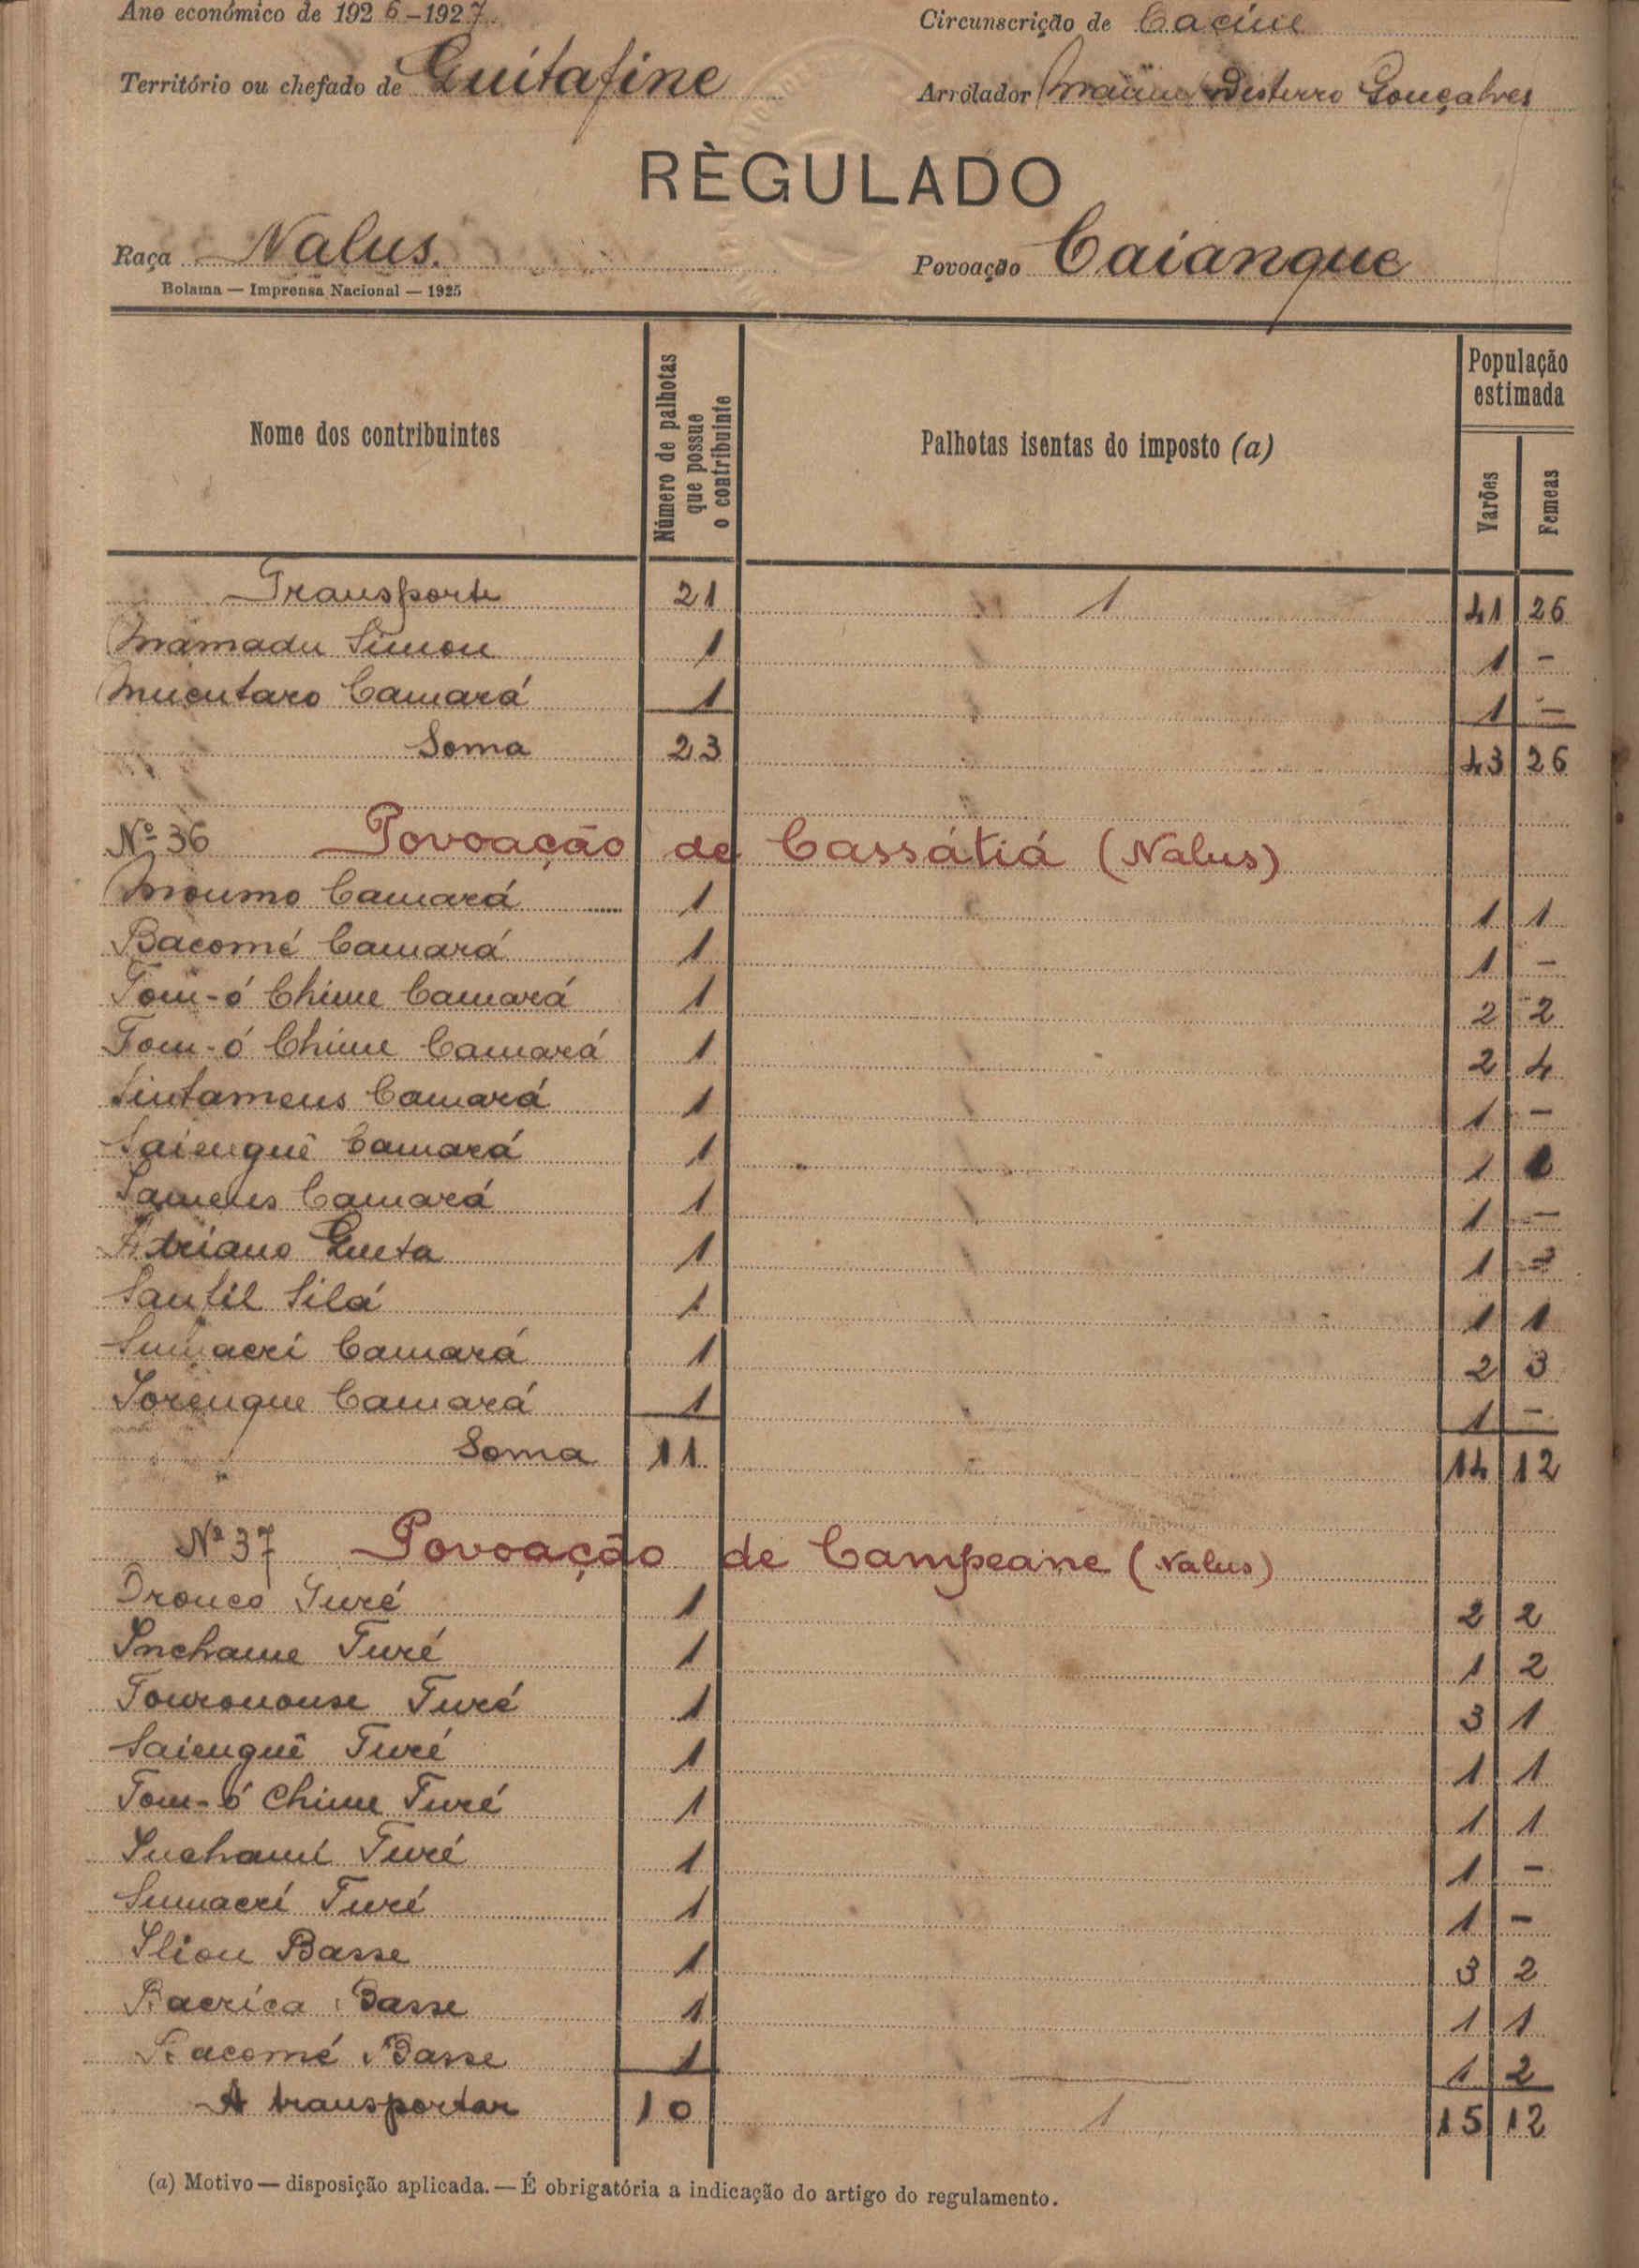 Ano económico de 1926-1927. Circunscrição de Cacine
Território ou chefado de Guitafine Arrolador Desterro Gonçalves
RÈGULADO
Raça Nalus. Povoação Caianque
Bolama — Imprensa Nacional — 1925
Nome dos contribuintes Número de palhotas que possue o contribuinte Palhotas isentas do imposto (a) População estimada Varões Femeas
Transporte 21 1 41 26
Mamadu Simon 1 1 -
Mucutaro Camará 1 1 -
Soma 23 43 26
Nº 36 Povoação de Cassátiá (Nalus)
Moumo Camará 1 1 1
Bacomé Camará 1 1 -
Tom-ó Chime Camará 1 2 2
Tom-ó Chime Camará 1 2 4
Sintameus Camará 1 1 -
Saienguê Camará 1 1
Sameus Camará 1 1 -
Adriano Gueta 1 1
Santil Silá 1 1 1
Sumacri Camará 1 2 3
Sorengue Camará 1 1 -
Soma 11 14 12
Nº 37 Povoação de Campeane (Nalus)
Dronco Turé 1 2 2
Inchame Turé 1 1 2
Turé 1 3 1
Saienguê Turé 1 1 1
Tom-ó Chime Turé 1 1 1
Suchamí Turé 1 1 -
Sumacrí Turé 1 1 -
Iliou Basse 1 3 2
Bacrica Basse 1 1 1
Bacomé Basse 1 1 2
A transportar 10 1 15 12
(a) Motivo — disposição aplicada. — É obrigatória a indicação do artigo do regulamento.